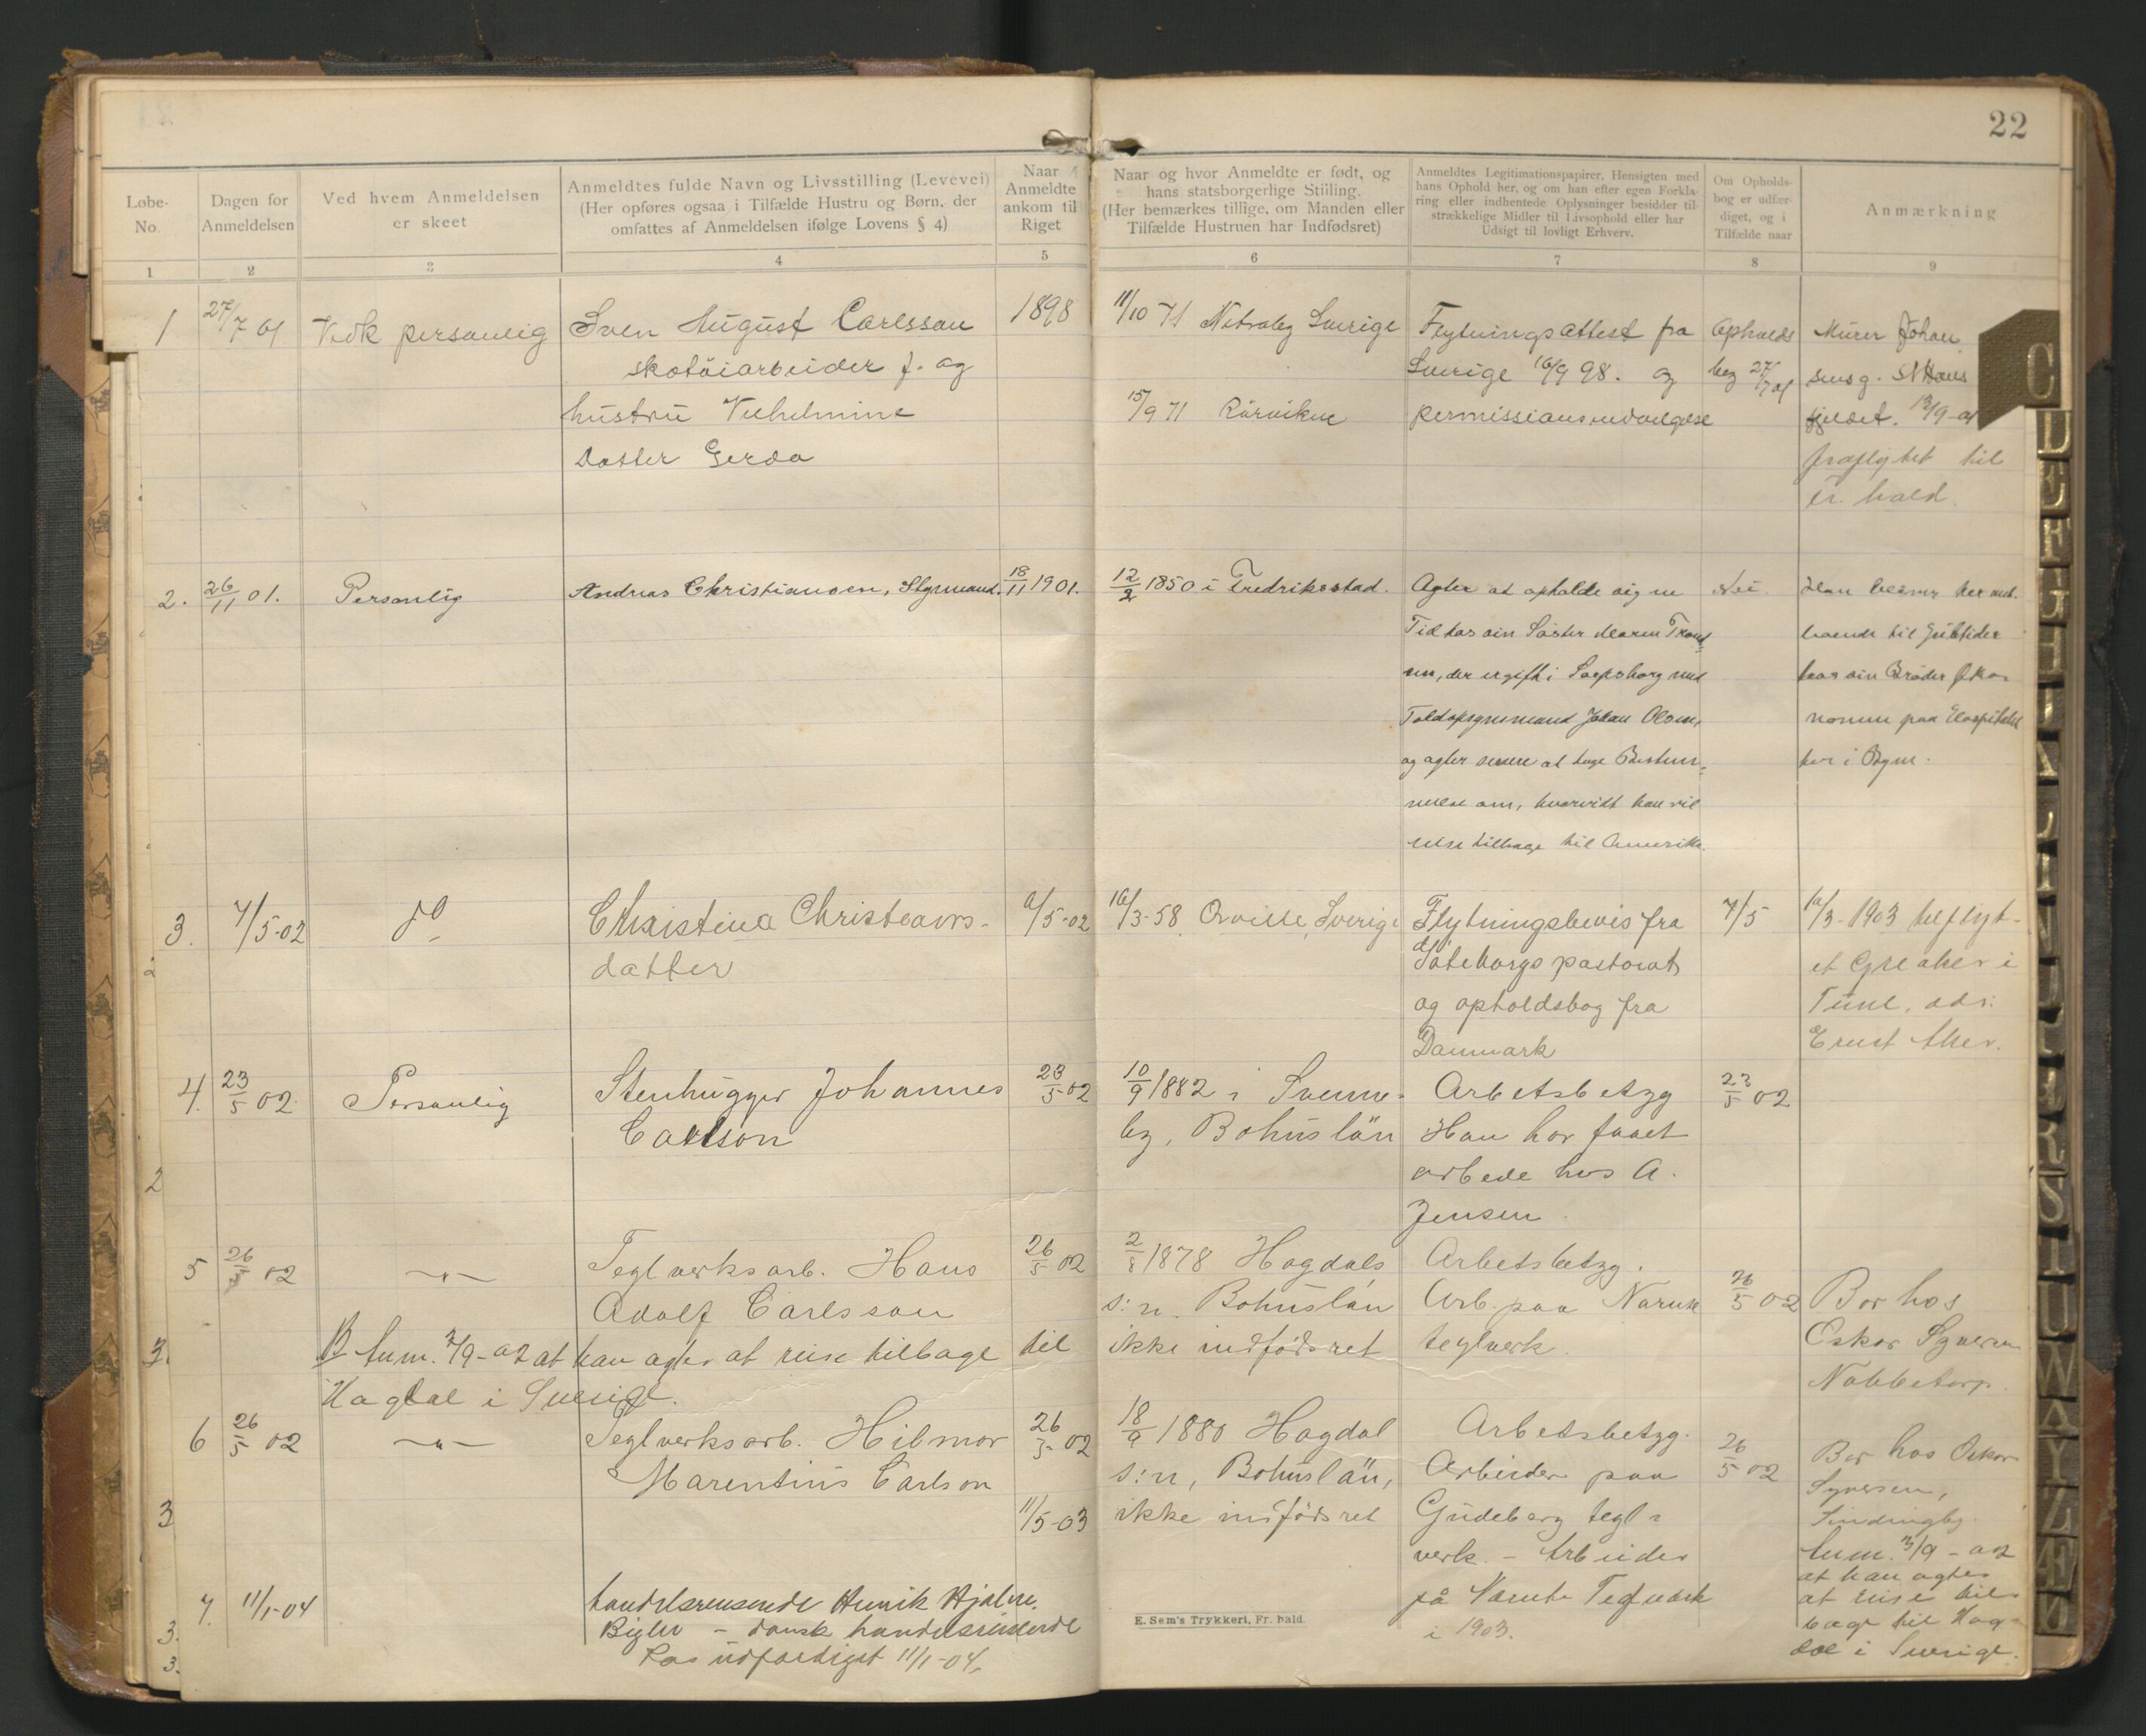 22
Løbe-
No.
Dagen for
Anmeldelsen
Ved hvem Anmeldelsen
er skeet
Anmeldtes fulde Navn og Livsstilling (Levevei)
(Her opføres ogsaa i Tilfælde Hustru og Børn, der
omfattes af Anmeldelsen ifølge Lovens § 4)
Naar
Anmeldte
ankom til
Riget
Naar og hvor Anmeldte er født, og
hans statsborgerlige Stiiling.
(Her bemærkes tillige, om Manden eller
Tilfælde Hustruen har Indfødsret)
Anmeldtes Legitimationspapirer, Hensigten med
hans Ophold her, og om han efter egen Forkla-
ring eller indhentede Oplysninger besidder til-
strækkelige Midler til Livsophold eller har
Udsigt til lovligt Erhverv.
Om Opholds-
bog er udfær-
diget, og i
Tilfælde naar
Anmærkning
1 2 3 4 5 6 7 8 9
1 27/7 01 Vedk personlig Sven August Carlsson 1898 11/10 71 Sverige Flytningsattest fra Opholds Murer Johan
skotöiarbeider f. og Sverige 16/9 98. og bog 27/7 01
hustru Vilhelmine 15/9 71 Rörvikne fjeldet. 13/9-01
Datter Gerda fraflyttet til
Fr. hald.
2. 26/11 01. Personlig Andreas Christiansen, Styrmand. 18/11 1901. 12/2 1850 i Fredriksstad. Agter at opholde sig en Nei.
Tid hos sin Söster Maren
nn, der er gift i Sarpsborg med hos sin Broder Öko-
Toldopsynsmand Johan Olsen, nomen paa Hospitalet
og agter senere at tage Bestem- her i Byen.
melse om, hvorvidt han vil
reise tilbage til Amerika.
3. 7/5-02 do Christina Christeans- 6/5-02 16/3-58. Qville, Sverige Flytningsbevis fra 7/5 10/3-1903
datter Göteborgs pastorat et Greaker i
og opholdsbog fra Tune, adr.
Danmark Ernst Aker.
4. 23/5 02. Personlig Stenhugger Johannes 23/5 02 10/9 1882 i Svenne- Arbetsbetyg 23/5 02
Carlson by, Bohuslän Han har faaet
arbede hos A.
Jensen.
5 26/5 02 —"— Teglverksarb. Hans 26/5 02 2/8 1878 Hogdals Arbetsbetyg.
Adolf Carlsson s:n. Bohuslän Arb. paa 26/5 02 Bor hos
Anm. 3/9-02 at han agter at reise tilbage til ikke indfödsret teglverk. Oskar Syversen
Hogdal i Sverige. Nabbetorp.
6 26/5 02 —"— Teglverksarb. Hilmar 26/5 02 18/9 1880 Hogdal Arbetsbetyg.
Marentius Carlson s:n, Bohuslän, Arbeider paa 26/5 02 Bor hos Oskar
11/5-03 ikke indfödsret Gudeberg tegl- Syversen,
verk. – Arbeider Anm. 3/9-02
på Teglverk at han agter
i 1903. at reise til-
bage til Hog-
dal i Sverige.
7. 11/1-04 handelsreisende Henrik Hjalm.
Bigler – dansk handelsreisende
Pas udfærdiget 11/1-04.
E. Sem's Trykkeri, Fr. hald.
C
D
E
F
G
H